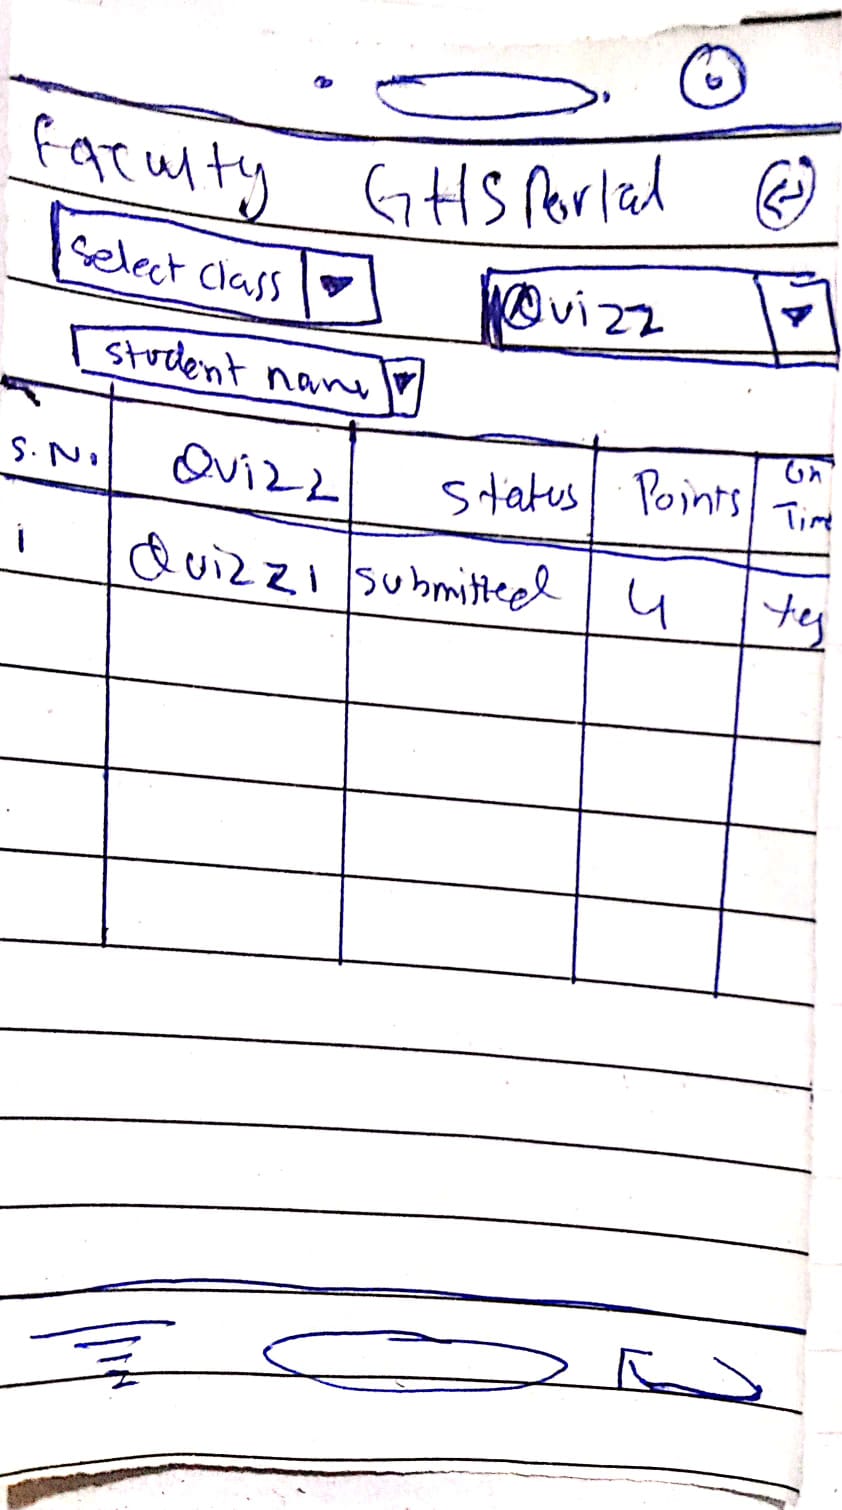 Faculty GHS Portal
Select Class Quizz
Student name
S.No. Quizz Status Points On Time
1 Quizz1 Submitted 4 Yes